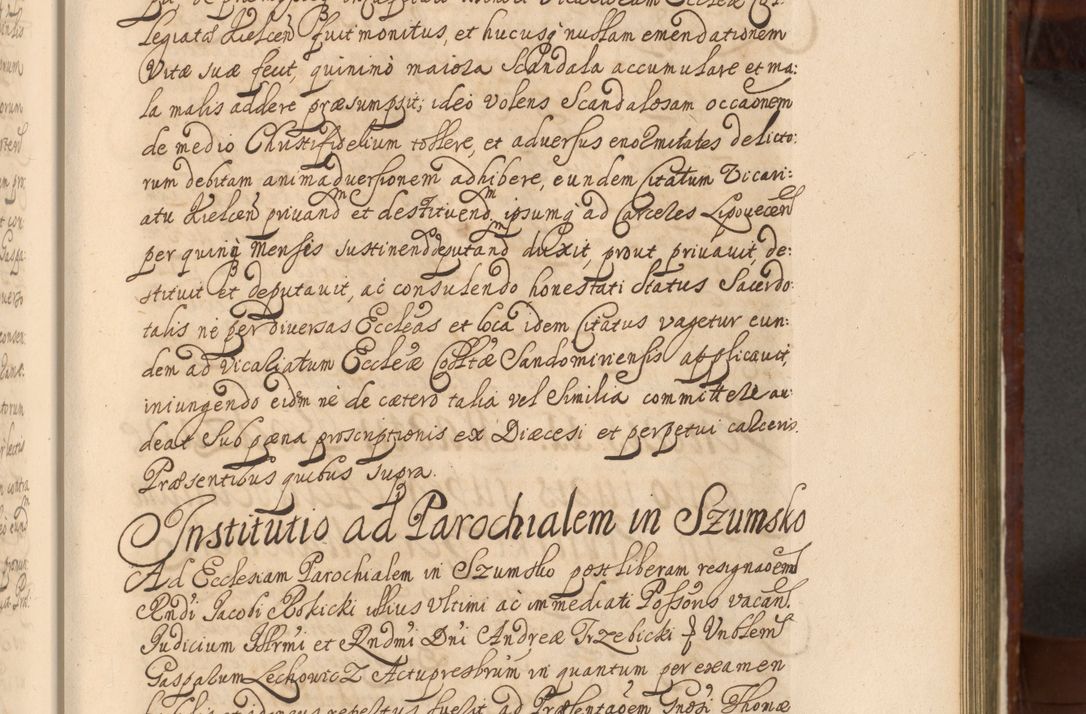 legiatæ Kielceñ fuit monitus, et hucusq nullam emendationem
Vitæ suæ fecit, quinimò maiora Scandala accumulare et ma:
la malis addere præsumpsit; ideo Volens Scandalosam occaōnem
de medio Christifidelium tollere, et adversus enormitates delicto:
rum debitam animadversionem adhibere, eundem Citatum Vicari:
atu Kielceñ privand et destituend, ipsumq ad Carceles Lipoveceñ
per quinq Menses sustinend deputand duxit, prout privavit, de:
stituit et deputavit, ac consulendo honestati Status Sacerdo:
talis nè per diversas Eccleas et loca idem Citatus vagetur eun:
dem ad vicariatum Eccleæ Collttæ Sandomiriensis applicavit,
iniungendo eidm nè de cætero talia vel Similia committere au:
deat Sub pæna proscriptionis ex Diæcesi et perpetui calceris.
Præsentibus quibus supra.
Institutio ad Parochialem in Szumsko
Ad Ecclesiam Parochialem in Szumsko post liberam resignaōem
Rndi Jacobi Rokicki illius Vltimi ac immediati Possoris vacan.
Judicium Illrmi et Rndmi Dni Andreæ Trzebicki Vnblem
Gasparum Lechowicz Actupresbrum in quantum per examen
fuerit ad Præsentaōem Thomæ